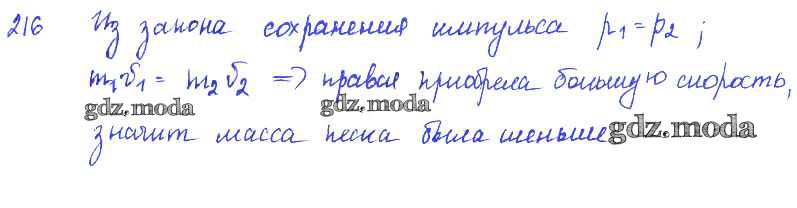 216 Из закона сохранения импульса p₁=p₂;
m₁v̄₁ = m₂v̄₂ => правая приобрела большую скорость,
gdz.moda gdz.moda
значит масса песка была меньше gdz.moda